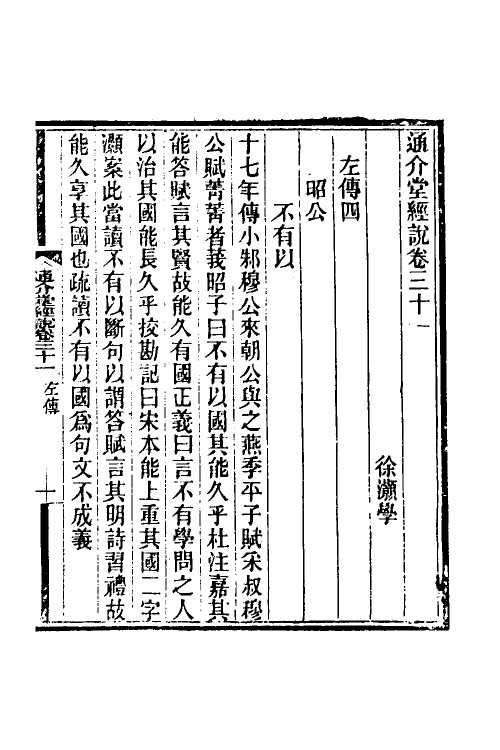 通介堂經說卷三十一
徐灝學
左傳四
昭公
不有以
十七年傳小邾穆公來朝公與之燕季平子賦采叔穆
公賦菁菁者莪昭子曰不有以國其能久乎杜注嘉其
能答賦言其賢故能久有國正義曰言不有學問之人
以治其國能長久乎挍勘記曰宋本能上重其國二字
灝案此當讀不有以斷句以謂答賦言其明詩習禮故
能久享其國也疏讀不有以國爲句文不成義
通介堂經說卷三十一 左傳 一